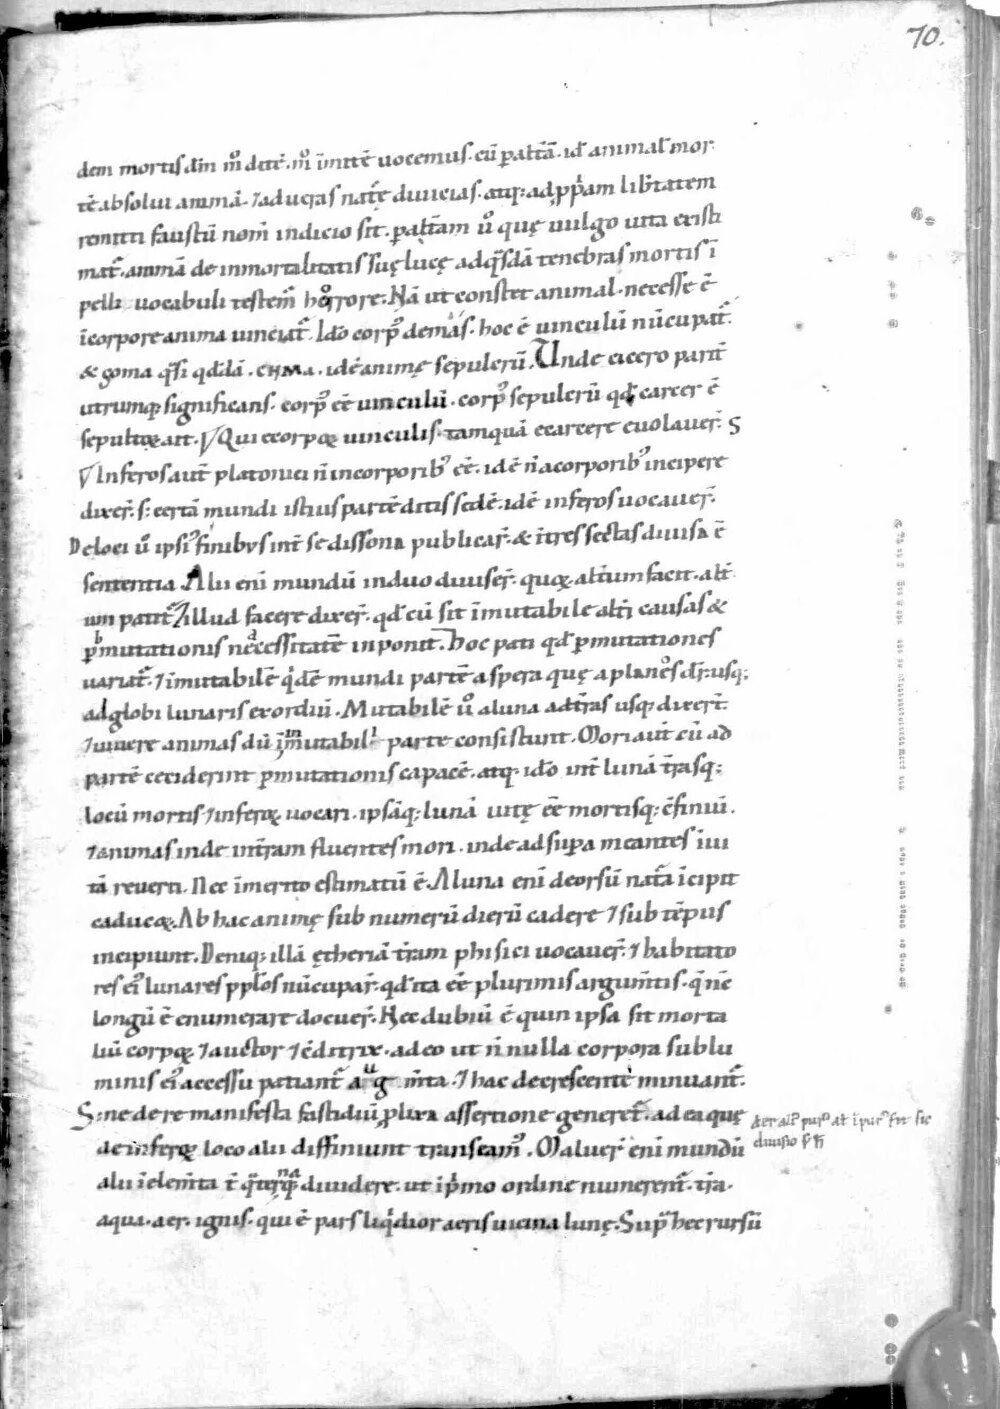 70.
dem mortis dn̄m m̊ ditē. m̊ īmitē uocemus. cū p̲ałtā. id̄ animał mor
tē absolui animā. ⁊ aducras nat᷑e diuicias. atq; ad pp̲am lib̄tatem
remitti faustū nom̄ indicio sit. p̲ałtam ů quę uulgo uita existi
mat᷑. animā de inmortalitatis suę lucę ad q̄sdā tenebras mortis ī
pelli uocabuli testem᷑ horrore. Nā ut constet animal. necesse ē
ī corpore anima uinciat᷑. Ido corpꝰ demas. hoc ē uinculū nūcupat᷑.
& soma q̄si qd̄dā. CHMA. idē animę sepulcrū. Unde cicero parit̄
utrumq; significans. corpꝰ eē uinculū. corpꝰ sepulcrū qd̄ carcer ē
sepultoꝝ ait. Qui ecorpoꝝ uinculis. tamquā ecarcere euolauer᷑. S
Inferos aut̄ platonici n̄ in corporibꝰ eē. idē n̄ a corporibꝰ incipere
dixer᷑. s; certā mundi istius partē ditis sedē. idē inferos uocauer᷑.
De loci ů ipsiꝰ finibus int̄ se dissona publicar᷑. & ī tres sectas diuisa ē
sententia. Alii eni mundū induo diuiser᷑. quoꝝ alt̄um facit. alt̄
um patit᷑. Illud facere dixer᷑. qd̄ cū sit īmutabile alt̄i causas &
p̲mutationis necessitatē inponit. Hoc pati qd̄ p̲mutationes
uariat᷑. ⁊ īmutabilē qⁱdē mundi partē a spera quę aplanes dr̄. usq;
ad globi lunaris exordiū. Mutabilē ů a luna ad t̄ras usq; dixer᷑.
⁊ uiuere animas dū īmutabili parte consistunt. Mori aut̄ cū ad
partē ceciderint p̲mutationis capacē. atq. ido int̄ lunā t̄rasq;
locū mortis ⁊ inferoꝝ uocari. ipsāq; lunā uitę eē mortisq; cfiniū.
⁊ animas inde int̄ram fluentes mori. inde ad sup̲a meantes ī ui
tā reuerti. Nec īmerito estimatū ē. A luna eni deorsū nat᷑a īcipit
caducoꝝ. Ab hac animę sub numerū dierū cadere ⁊ sub tēpus
incipiunt. Deniq; illā ętheriā t̄ram phisici uocauer᷑. ⁊ habitato
res eiꝰ lunares pp̲los nūcupar᷑. qd̄ ita eē plurimis argum̄tis. q̄ nc̄
longū ē enumerare docuer᷑. Nec dubiū ē quin ipsa sit morta
liū corpoꝝ ⁊ auctor ⁊ cditrix. adeo ut n̄ nulla corpora sublu
minis eiꝰ accessu patiant᷑ aug m̄ta. ⁊ hac decrescente minuant᷑.
Sine de re manifesta fastidiū plixa assertione generet᷑. ad ea quę
de inferoꝝ loco alii diffiniunt transeamꝰ. Maluer᷑ eni mundū
alii ī elem̄ta t̄ q̄t̄q̄ diuidere. ut ī pⁱmo ordine numerent᷑. t̄ra.
aqua. aer. ignis. qui ē pars liqⁱdior aeris uicina lunę. Sup᷑ hec rursū
diuisio